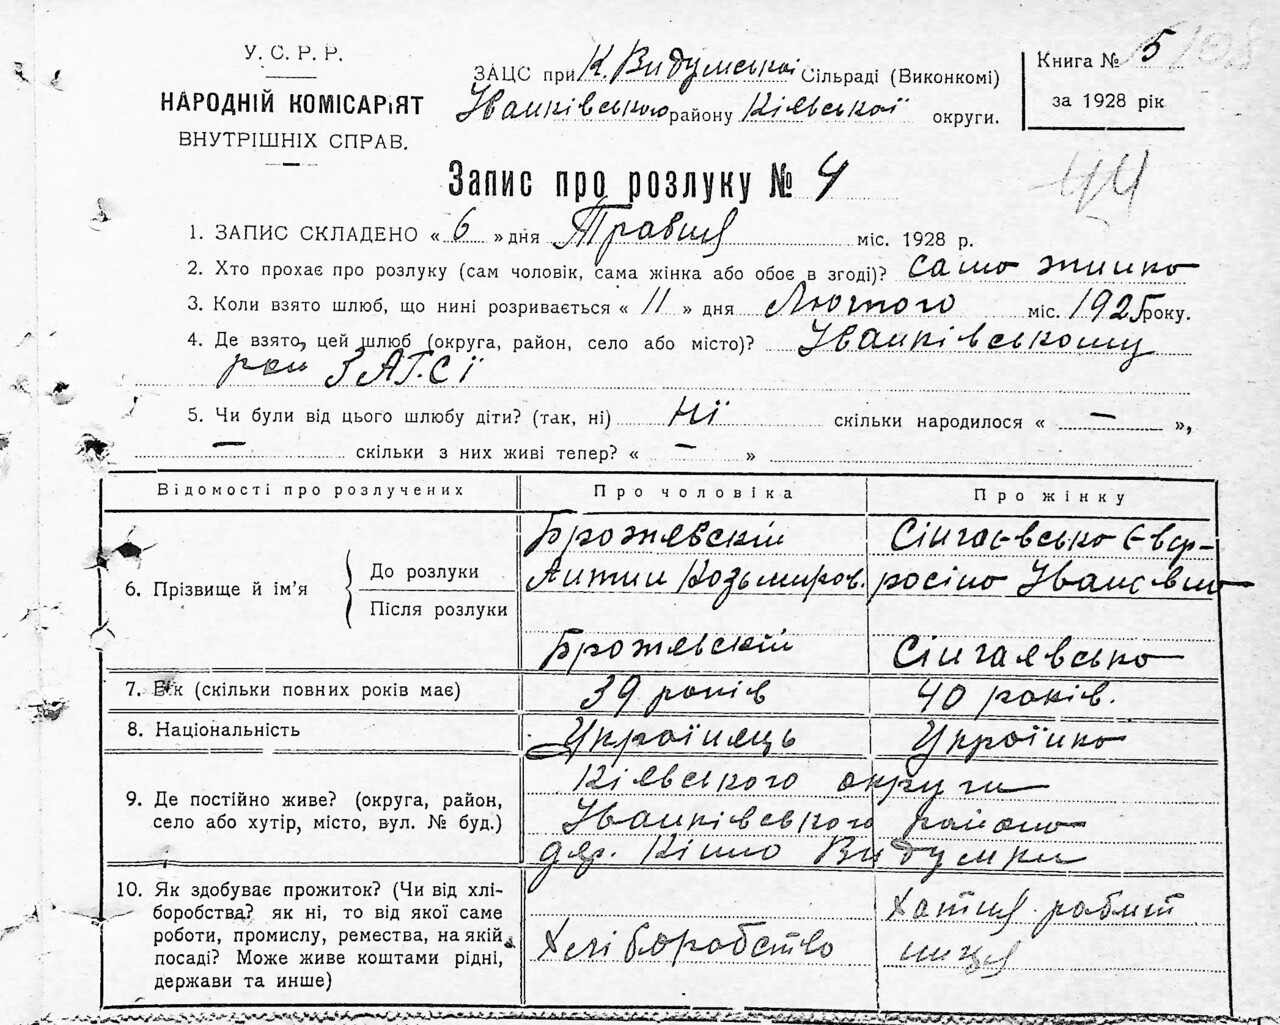 У. С. Р. Р.
НАРОДНІЙ КОМІСАРІЯТ
ВНУТРІШНІХ СПРАВ.
ЗАЦС при К. Видумській Сільраді (Виконкомі)
Іванківського району Київської округи.
Книга № 5
за 1928 рік
44
Запис про розлуку № 4
1. ЗАПИС СКЛАДЕНО « 6 » дня Травня міс. 1928 р.
2. Хто прохає про розлуку (сам чоловік, сама жінка або обоє в згоді)? сама жинка
3. Коли взято шлюб, що нині розривається « 11 » дня Лютого міс. 1925 року.
4. Де взято цей шлюб (округа, район, село або місто)? Іванківському
рай ЗАГСї
5. Чи були від цього шлюбу діти? (так, ні) нї скільки народилося « — »,
— скільки з них живі тепер? « — »
Відомості про розлучених Про чоловіка Про жінку
6. Прізвище й ім'я До розлуки Після розлуки
Брожевскій Сінгаєвська Євф-
Антин Козьмиров. росіна Іванєвна
Брожевскій Сінгаявська
7. Вік (скільки повних років має) 39 років 40 років.
8. Національність Українець Українка
9. Де постійно живе? (округа, район,
село або хутір, місто, вул. № буд.)
Кіявського округи
Іванківського района
дер. Видумка
10. Як здобуває прожиток? (Чи від хлі-
боробства? як ні, то від якої саме
роботи, промислу, ремества, на якій
посаді? Може живе коштами рідні,
держави та инше)
Хліборобство
Хатня робит
ниця